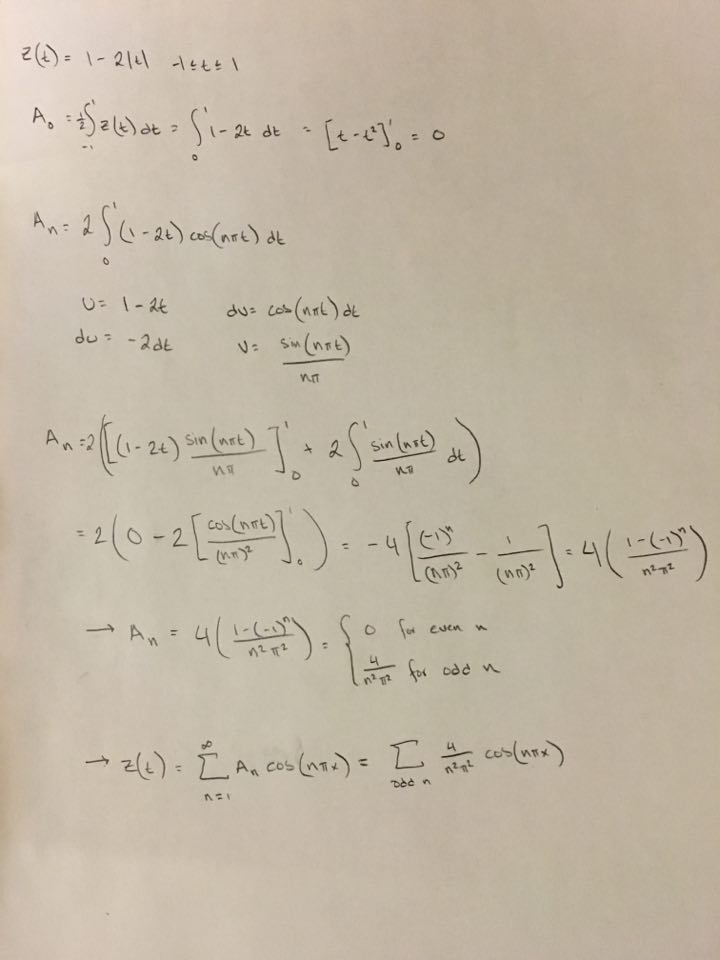 z(t) = 1 - 2|t|   -1 ≤ t ≤ 1
A₀ = ½∫₋₁¹ z(t) dt = ∫₀¹ 1 - 2t dt = [t - t²]₀¹ = 0
Aₙ = 2 ∫₀¹ (1 - 2t) cos(nπt) dt
u = 1 - 2t   dv = cos(nπt) dt
du = -2dt   v = sin(nπt)/nπ
Aₙ = 2([(1 - 2t) sin(nπt)/nπ]₀¹ + 2 ∫₀¹ sin(nπt)/nπ dt)
= 2(0 - 2[cos(nπt)/(nπ)²]₀¹) = -4[(-1)ⁿ/(nπ)² - 1/(nπ)²] = 4(1-(-1)ⁿ/n²π²)
→ Aₙ = 4(1-(-1)ⁿ/n²π²) = { 0 for even n
4/n²π² for odd n
→ z(t) = ∑ₙ₌₁^∞ Aₙ cos(nπx) = ∑ odd n 4/n²π² cos(nπx)